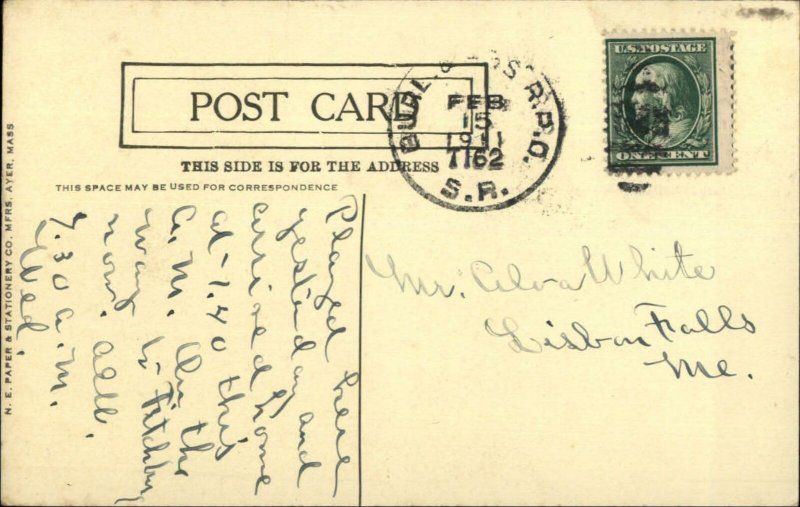 POST CARD
THIS SIDE IS FOR THE ADDRESS
THIS SPACE MAY BE USED FOR CORRESPONDENCE
N. E. PAPER & STATIONERY CO. MFRS. AYER, MASS
U.S. POSTAGE
ONE CENT
BURL. & R.P.O.
FEB
15
1911
T162
S.R.
Played here
yesterday and
arrived home
at 1.40 this
a.m. On the
way to Fitchburg
now. All.
7.30 a.m.
Wed.
Mr. Alva White
Lisbon Falls
Me.